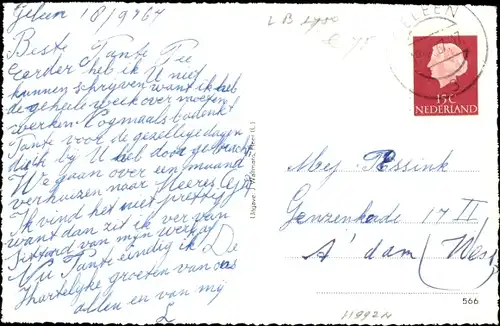 Geleen 18/9 67
Beste Tante Tee
Eerder heb ik U niet
kunnen schrijven want ik heb
de gehele week over moeten
werken Nogmaals bedankt
Tante voor de gezellige dagen
die ik bij U heb door gebracht
We gaan over een maand
verhuizen naar Heerlen
Ik vind het niet prettig
want dan zit ik ver van
Sittard van mijn werk af
Nu Tante eindig ik De
Hartelijke groeten van ons
allen en van mij
LB 2400
GELEEN
15c
NEDERLAND
Uitgave: J. Walmans,
Mej Rossink
Genzenkade 17 II
A'dam (West
566
11992N